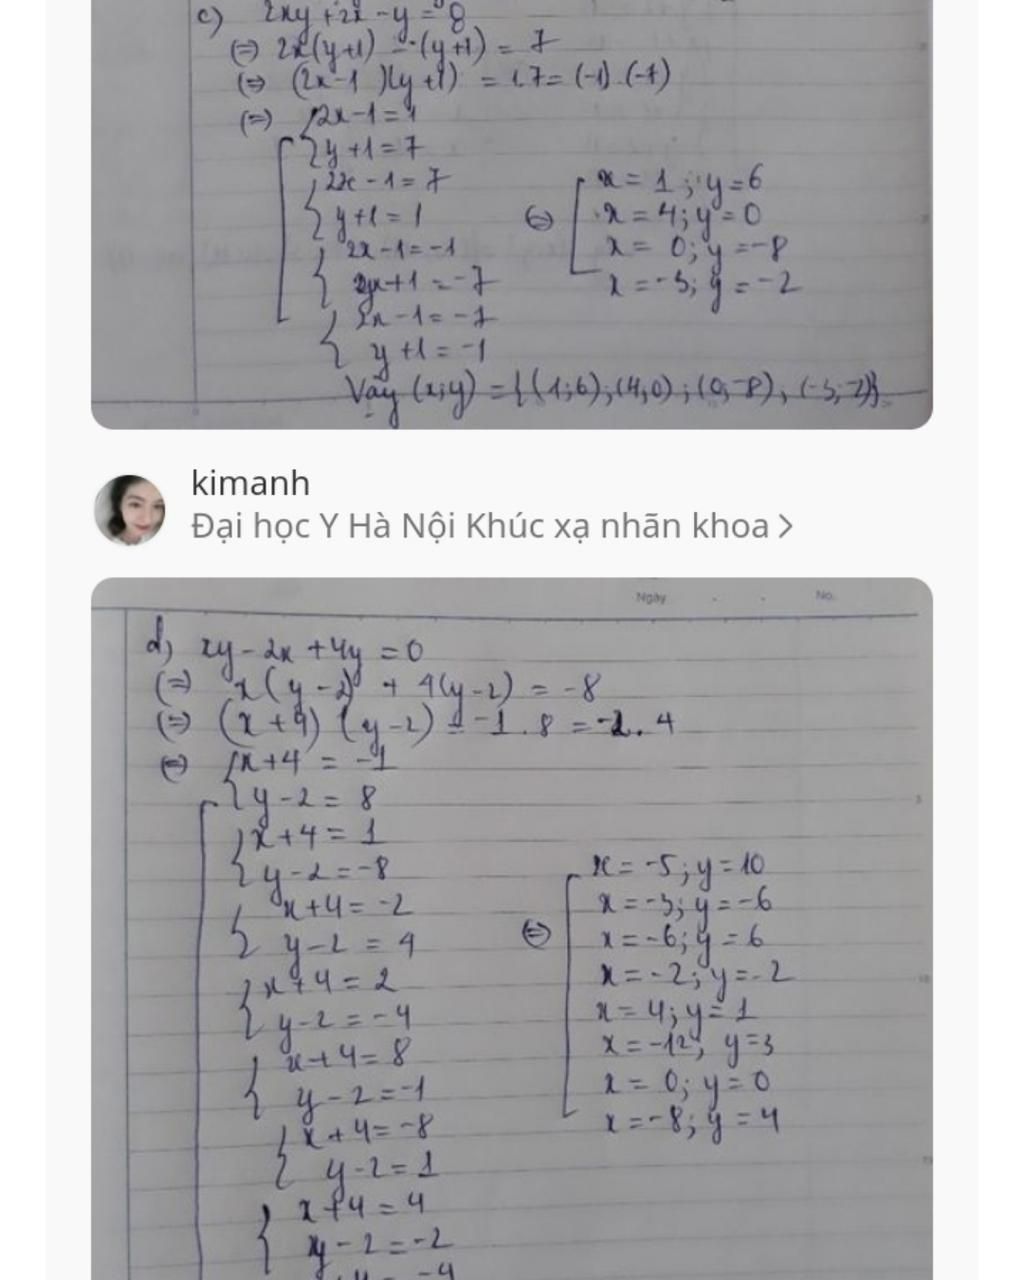 c) 2xy + 2x - y = 8
(=) 2x(y+1) - (y+1) = 7
(=) (2x-1)(y+1) = 1.7 = (-1).(-7)
(=) 2x-1=1
y+1=7
2x-1=7
y+1=1
2x-1=-1
y+1=-7
2x-1=-7
y+1=-1
(=) x=1; y=6
x=4; y=0
x=0; y=-8
x=-3; y=-2
Vậy (x;y) = {(1;6);(4,0);(0,-8),(-3;-2)}
kimanh
Đại học Y Hà Nội Khúc xạ nhãn khoa >
Ngày . . No.
d) xy-2x+4y=0
(=) x(y-2) + 4(y-2) = -8
(=) (x+4)(y-2) = -1.8 = -2.4
(=) x+4=-1
y-2=8
x+4=1
y-2=-8
x+4=-2
y-2=4
x+4=2
y-2=-4
x+4=8
y-2=-1
x+4=-8
y-2=1
x+4=4
y-2=-2
(=) x=-5; y=10
x=-3; y=-6
x=-6; y=6
x=-2; y=-2
x=4; y=1
x=-12; y=3
x=0; y=0
x=-8; y=4